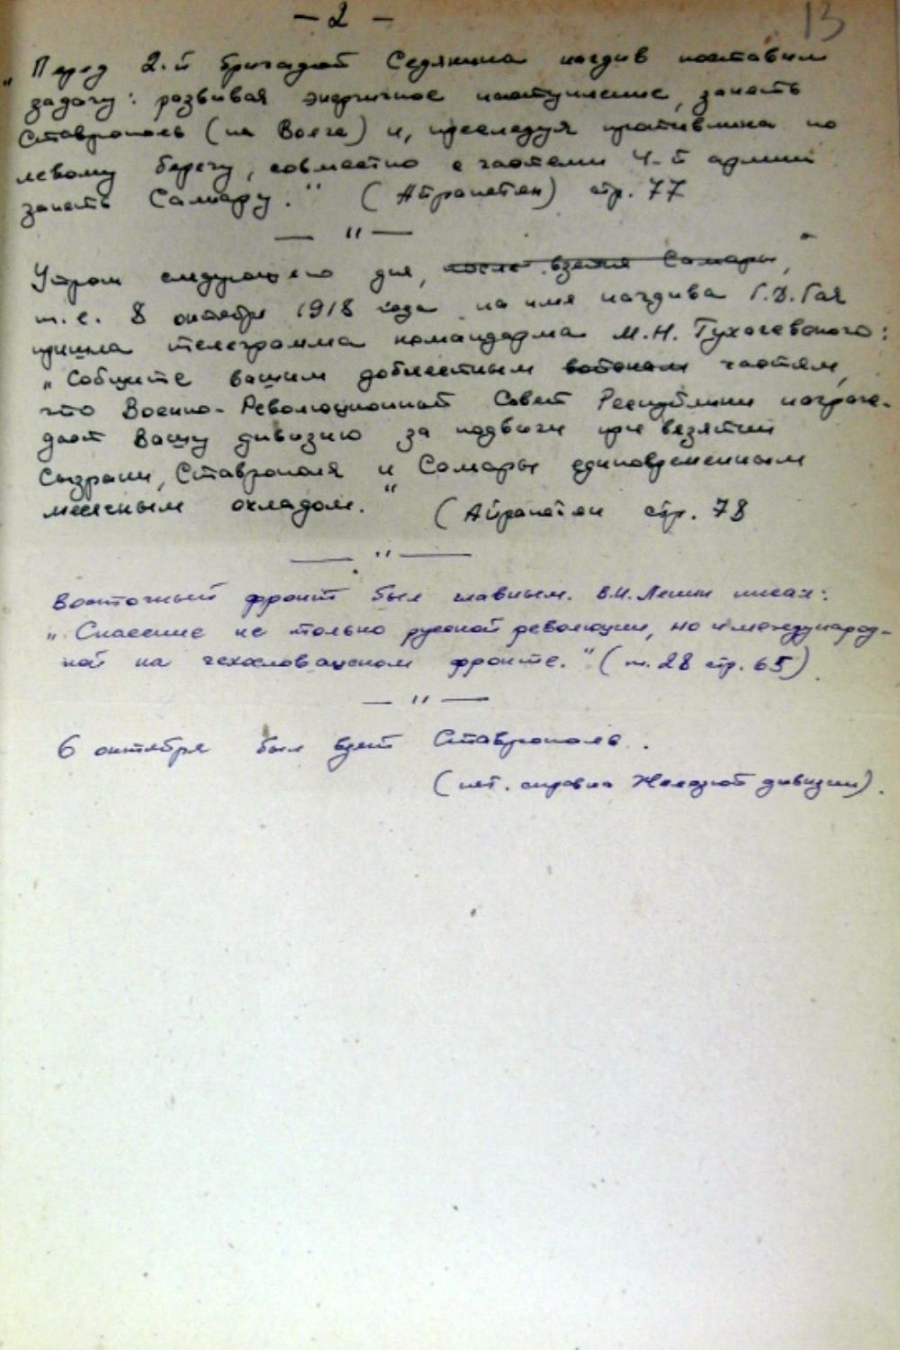 — 2 —
13
„Перед 2-й бригадой Седякина начдив поставил
задачу: развивая энергичное наступление, занять
Ставрополь (на Волге) и, преследуя противника по
левому берегу, совместно с частями 4-й армии
занять Самару." (Айрапетян) стр. 77
— " —
Утром следующего дня, после взятия Самары,
т.е. 8 октября 1918 года на имя начдива Г.Д. Гая
пришла телеграмма командарма М.Н. Тухачевского:
„Сообщите вашим доблестным войскам частям,
что Военно-Революционный Совет Республики награж-
дает Вашу дивизию за подвиги при взятии
Сызрани, Ставрополя и Самары единовременным
месячным окладом." (Айрапетян стр. 78
— " —
Восточный фронт был главным. В.И. Ленин писал:
„Спасение не только русской революции, но и международ-
ной на чехословацком фронте." (т. 28 стр. 65).
— " —
6 октября был взят Ставрополь.
(ист. справка Железной дивизии).